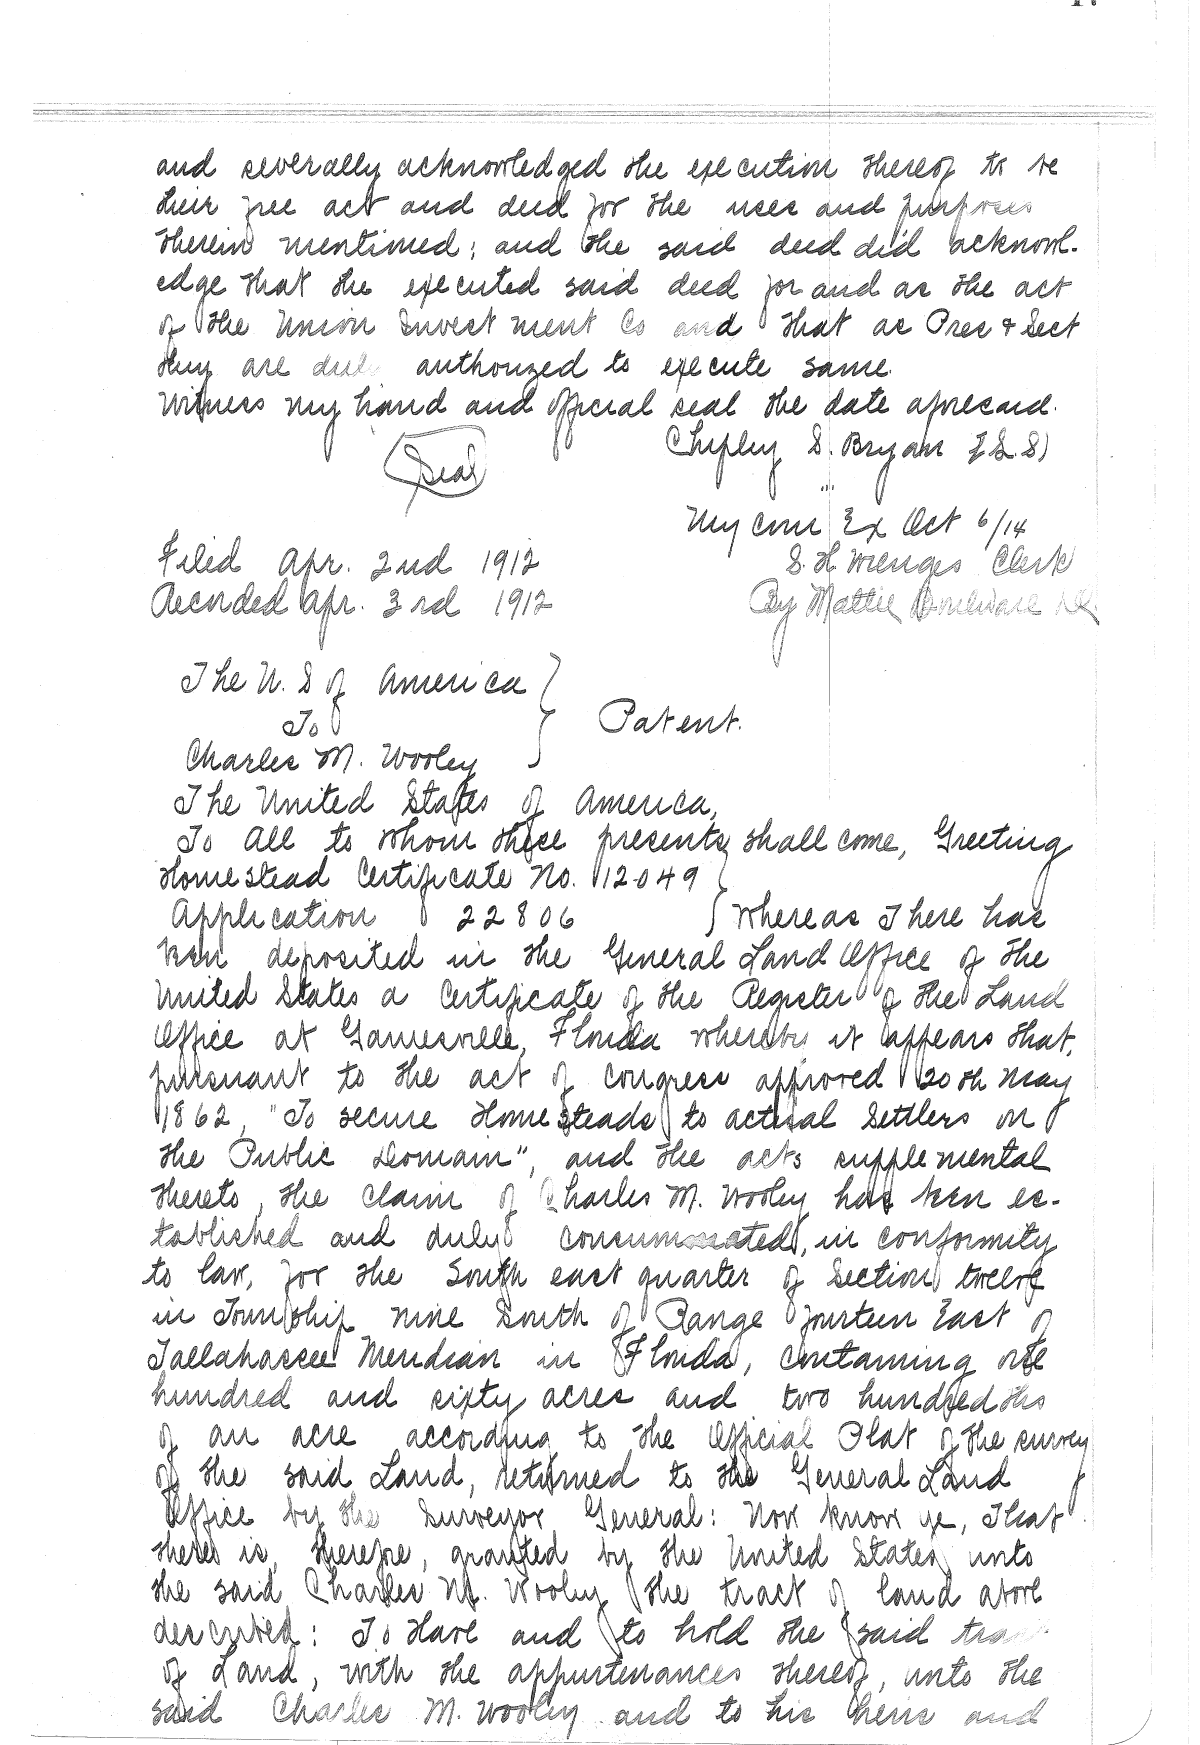 and severally acknowledged the execution thereof to be
their free act and deed for the uses and purposes
therein mentioned; and the said deed did acknowl-
edge that the executed said deed for and as the act
of the Union Investment Co and that as Pres & Sect
they are duly authorized to execute same.
Witness my hand and official seal the date aforesaid.
Chipley S. Bryan (L.S.)
Seal
My Com Ex Oct 6/14
Filed Apr. 2nd 1912
S. H. Wienges Clerk
Recorded Apr. 3rd 1912
By Mattie Boulware D.C.
The U. S of America
To
Patent.
Charles M. Wooley
The United States of America,
To All to whom these presents shall come, Greeting
Homestead Certificate No. 12049
Application 22806 Whereas There has
been deposited in the General Land Office of the
United States a Certificate of the Register of the Land
Office at Gainesville, Florida whereby it appears that,
pursuant to the act of Congress approved 20th May
1862, "To secure Homesteads to actual Settlers on
the Public Domain", and the acts supplemental
thereto, the claim of Charles M. Wooley has been es-
tablished and duly consummated, in conformity
to law, for the South east quarter of Section twelve
in Township nine South of Range fourteen East of
Tallahassee Meridian in Florida, containing one
hundred and sixty acres and two hundredths
of an acre according to the Official Plat of the survey
of the said Land, returned to the General Land
Office by the Surveyor General: Now know ye, That
there is, therefore, granted by the United States unto
the said Charles M. Wooley the tract of land above
described: To Have and to hold the said tract
of Land, with the appurtenances thereof, unto the
said Charles M. Wooley and to his heirs and